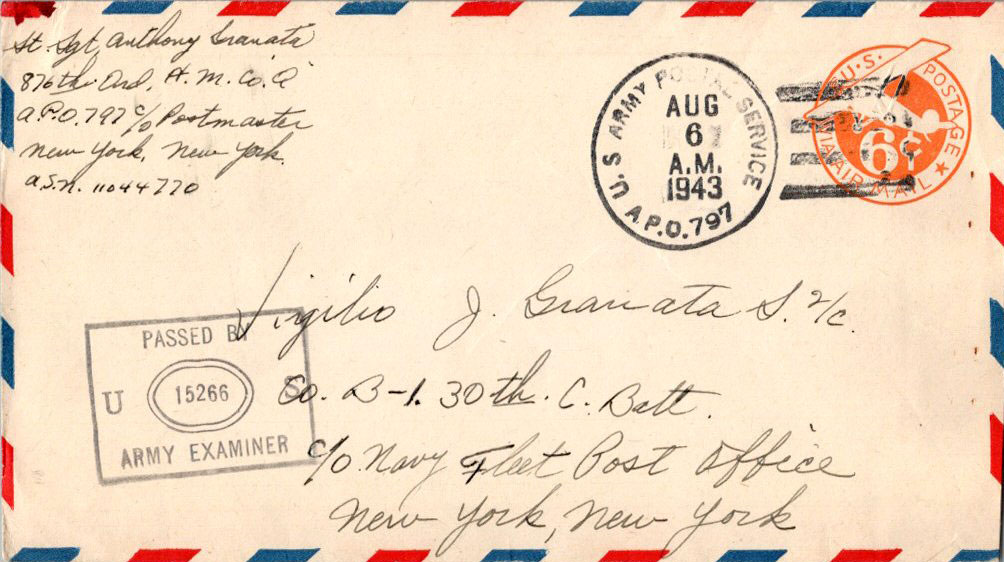 St. Sgt. Anthony Granata
876th Ord. H. M. Co. Q
A.P.O. 797 c/o Postmaster
New York, New York.
A.S.N. 11044770
U.S. ARMY POSTAL SERVICE
AUG
6
A.M.
1943
A.P.O. 797
U.S. POSTAGE
6¢
VIA AIR MAIL
Virgilio J. Granata S. 2/c.
Co. B-1. 30th. C. Batt.
c/o Navy Fleet Post Office
New York, New York
PASSED BY
U 15266 S
ARMY EXAMINER